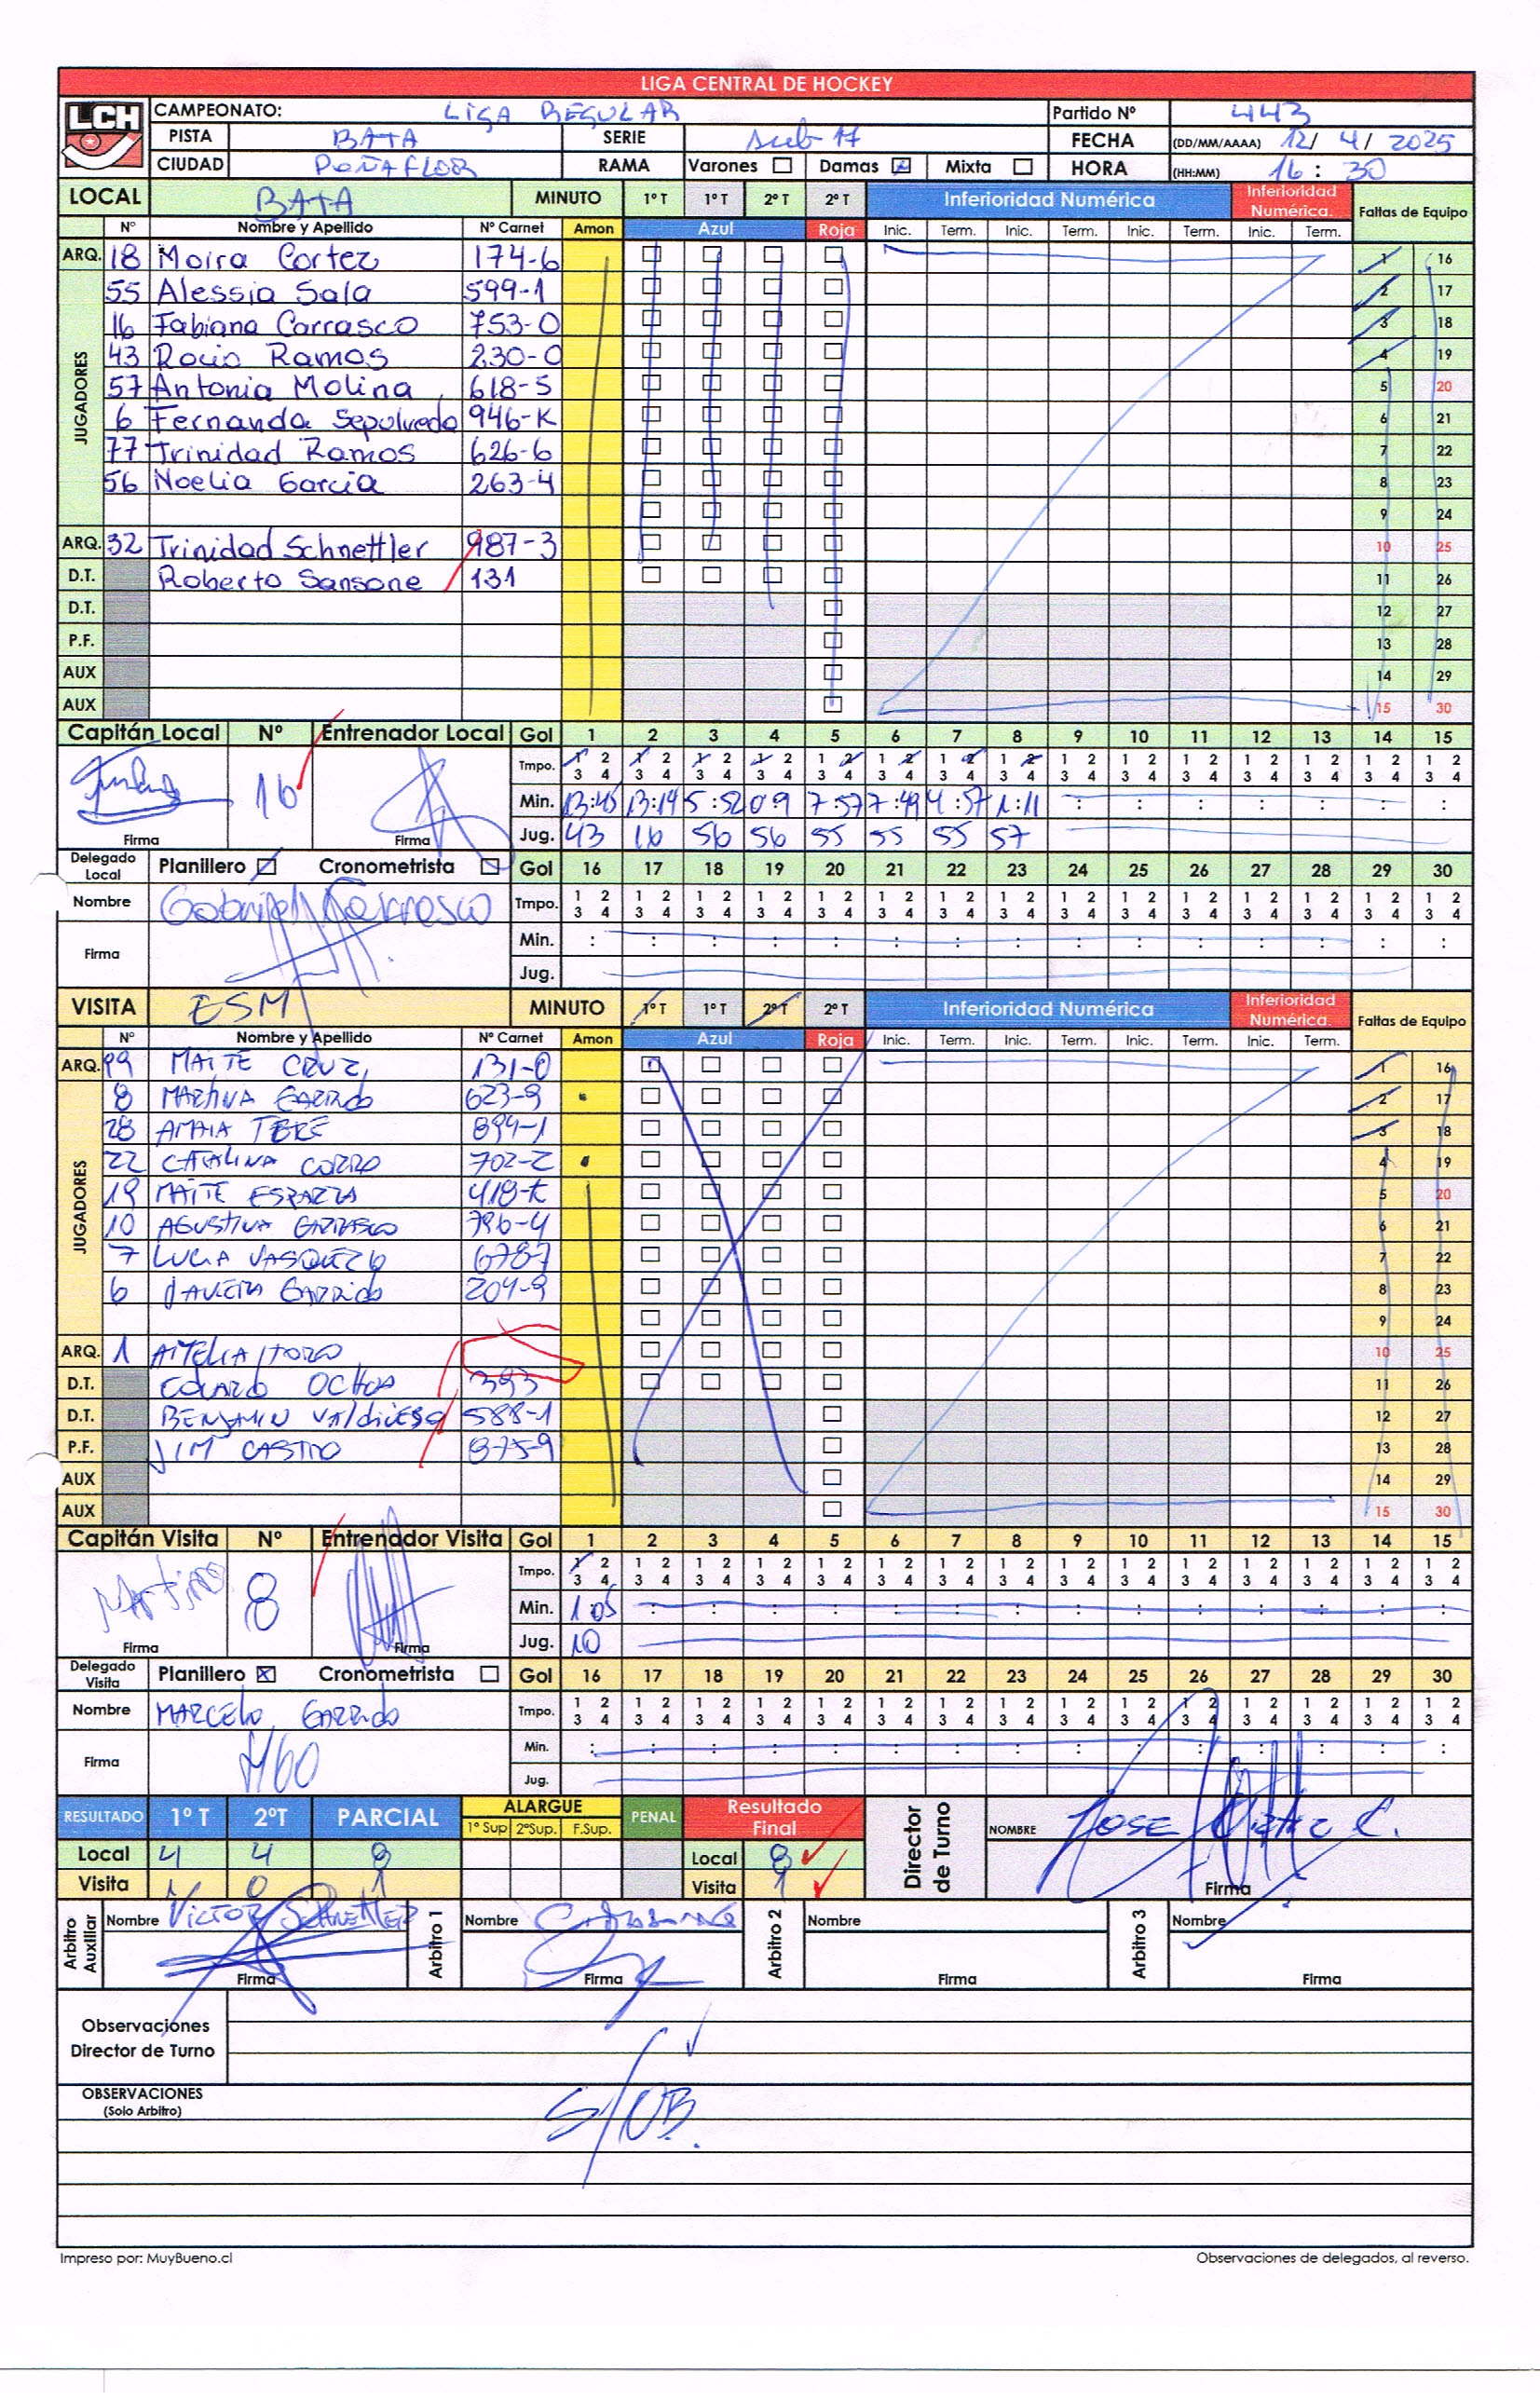 LIGA CENTRAL DE HOCKEY
LCH
CAMPEONATO: LIGA REGULAR Partido Nº 443
PISTA BATA SERIE sub 17 FECHA (DD/MM/AAAA) 12/ 4/ 2025
CIUDAD PEÑAFLOR RAMA Varones Damas Mixta HORA (HH:MM) 16 : 30
LOCAL BATA MINUTO 1º T 1º T 2º T 2º T Inferioridad Numérica Inferioridad Numérica. Faltas de Equipo
Nº Nombre y Apellido Nº Carnet Amon Azul Roja Inic. Term. Inic. Term. Inic. Term. Inic. Term.
ARQ. 18 Moira Cortez 174-6 1 16
JUGADORES
55 Alessia Sala 599-1 2 17
16 Fabiana Carrasco 753-0 3 18
43 Rocio Ramos 230-0 4 19
57 Antonia Molina 618-5 5 20
6 Fernanda Sepulveda 946-K 6 21
77 Trinidad Ramos 626-6 7 22
56 Noelia Garcia 263-4 8 23
9 24
ARQ. 32 Trinidad Schnettler 987-3 10 25
D.T. Roberto Sansone 131 11 26
D.T. 12 27
P.F. 13 28
AUX 14 29
AUX 15 30
Capitán Local Nº Entrenador Local Gol 1 2 3 4 5 6 7 8 9 10 11 12 13 14 15
Tmpo. 1 2 1 2 1 2 1 2 1 2 1 2 1 2 1 2 1 2 1 2 1 2 1 2 1 2 1 2 1 2
3 4 3 4 3 4 3 4 3 4 3 4 3 4 3 4 3 4 3 4 3 4 3 4 3 4 3 4 3 4
16 Min. 13:45 13:14 5:52 09 7:57 7:49 4:57 1:11
Firma Firma Jug. 43 16 56 56 55 55 55 57
Delegado Local Planillero Cronometrista Gol 16 17 18 19 20 21 22 23 24 25 26 27 28 29 30
Nombre Gabriel Carrasco Tmpo. 1 2 1 2 1 2 1 2 1 2 1 2 1 2 1 2 1 2 1 2 1 2 1 2 1 2 1 2 1 2
3 4 3 4 3 4 3 4 3 4 3 4 3 4 3 4 3 4 3 4 3 4 3 4 3 4 3 4 3 4
Firma Min. : : : : : : : : : : : : : : :
Jug.
VISITA ESM MINUTO 1º T 1º T 2º T 2º T Inferioridad Numérica Inferioridad Numérica. Faltas de Equipo
Nº Nombre y Apellido Nº Carnet Amon Azul Roja Inic. Term. Inic. Term. Inic. Term. Inic. Term.
ARQ. 99 MAITE CRUZ 131-0 1 16
JUGADORES
8 MARTINA GARRIDO 623-9 2 17
28 AMAIA 894-1 3 18
22 CATALINA CORRO 702-2 4 19
19 MAITE ESPARZA 418-K 5 20
10 AGUSTINA CARRASCO 796-4 6 21
7 LUCIA VASQUEZ 678-7 7 22
6 JAVIERA GARRIDO 204-9 8 23
9 24
ARQ. 1 10 25
D.T. EDUARDO OCHOA 393 11 26
D.T. BENJAMIN VALDIVIESO 588-1 12 27
P.F. JIM CASTRO 875-9 13 28
AUX 14 29
AUX 15 30
Capitán Visita Nº Entrenador Visita Gol 1 2 3 4 5 6 7 8 9 10 11 12 13 14 15
Tmpo. 1 2 1 2 1 2 1 2 1 2 1 2 1 2 1 2 1 2 1 2 1 2 1 2 1 2 1 2 1 2
3 4 3 4 3 4 3 4 3 4 3 4 3 4 3 4 3 4 3 4 3 4 3 4 3 4 3 4 3 4
Martina 8 Min. 1:05
Firma Firma Jug. 10
Delegado Visita Planillero Cronometrista Gol 16 17 18 19 20 21 22 23 24 25 26 27 28 29 30
Nombre MARCELO GARRIDO Tmpo. 1 2 1 2 1 2 1 2 1 2 1 2 1 2 1 2 1 2 1 2 1 2 1 2 1 2 1 2 1 2
3 4 3 4 3 4 3 4 3 4 3 4 3 4 3 4 3 4 3 4 3 4 3 4 3 4 3 4 3 4
Firma Min. : : : : : : : : : : : : : : :
Jug.
RESULTADO 1º T 2ºT PARCIAL ALARGUE 1º Sup 2ºSup. F.Sup. PENAL Resultado Final Director de Turno NOMBRE JOSE C.
Local 4 4 8 Local 8
Visita 1 0 1 Visita 1 Firma
Arbitro Auxiliar Nombre VICTOR SCHNETTLER Arbitro 1 Nombre Arbitro 2 Nombre Arbitro 3 Nombre
Firma Firma Firma Firma
Observaciones
Director de Turno
OBSERVACIONES
(Solo Arbitro)
S/OB.
Impreso por: MuyBueno.cl Observaciones de delegados, al reverso.